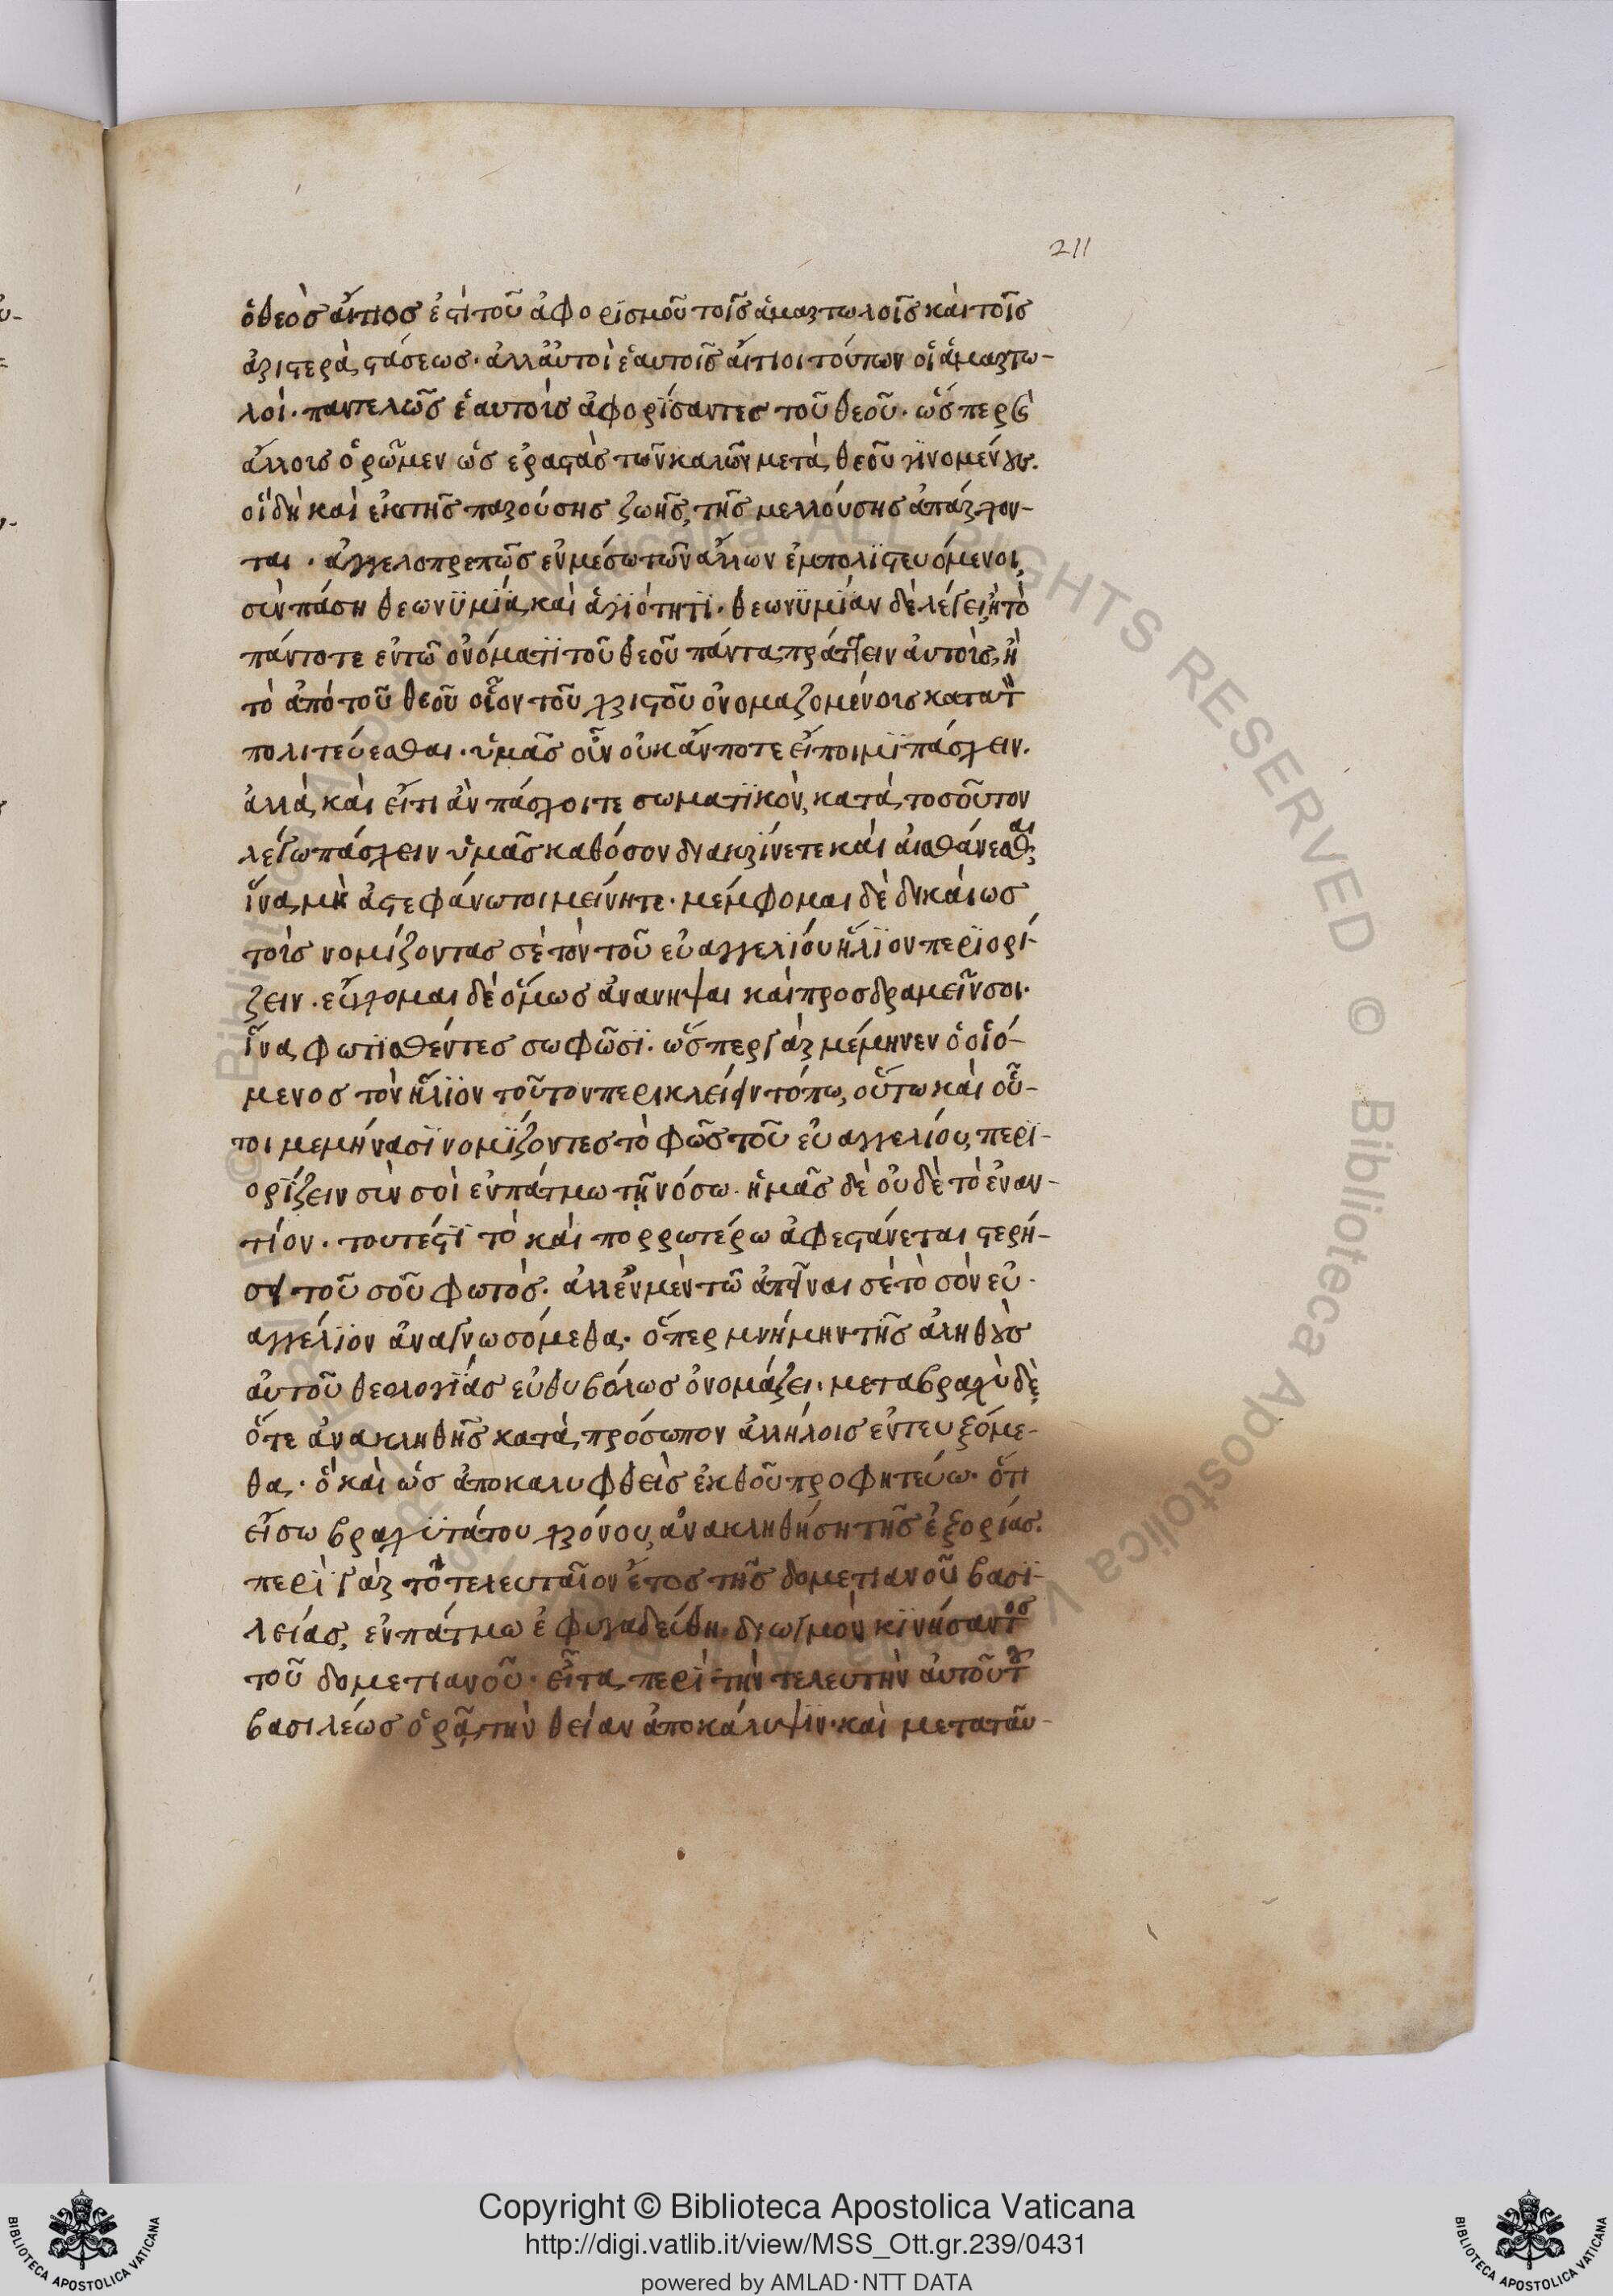 211
ὁ θεὸσ αἴτιοσ ἐστὶ τοῦ ἀφορισμοῦ τοῖσ ἁμαρτωλοῖσ καὶ τοῖσ
ἀριστερᾶ στάσεωσ· ἀλλ' αὐτοὶ ἑαυτοῖσ αἴτιοι τούτων οἱ ἁμαρτω-
λοὶ· παντελῶσ ἑαυτοὺσ ἀφορίσαντεσ τοῦ θεοῦ· ὥσπερ
ἄλλουσ ὁρῶμεν ὡσ ἐραστὰσ τῶν καλῶν μετὰ θεοῦ γινομένουσ.
οἳ δὴ καὶ ἐκ τῆσ παρούσησ ζωῆσ, τῆσ μελλούσησ ἀπάρχον-
ται· ἀγγελοπρεπῶσ ἐν μέσω τῶν ἄλλων ἐμπολιτευόμενοι,
σὺν πάση θεωνϋμϊᾳ καὶ ἁγϊότητϊ· θεωνϋμϊαν δὲ λέγει, ἢ τὸ
πάντοτε ἐν τῶ ὀνόματϊ τοῦ θεοῦ πάντα πράττειν αὐτοὺσ, ἢ
τὸ ἀπὸ τοῦ θεοῦ οἷον τοῦ χριστοῦ ὀνομαζομένουσ κατ' αὐτὸν
πολιτεύεσθαι· ὑμᾶσ οὖν οὐκ ἄν ποτε εἴποιμϊ πάσχειν.
ἀλλὰ καὶ εἴ τι ἂν πάσχοιτε σωματϊκὸν, κατὰ τοσοῦτον
λέγω πάσχειν ὑμᾶσ καθόσον διακρίνετε καὶ αἰσθάνεσθαι,
ἵνα μὴ ἀστεφάνωτοι μείνητε· μέμφομαι δὲ δικαίωσ
τοὺσ νομίζοντασ σὲ τὸν τοῦ εὐαγγελϊου ἥλϊον περϊορί-
ζειν· εὔχομαι δὲ ὅμωσ ἀνανηψαι καὶ προσδραμεῖν σοι·
ἵνα φωτϊσθέντεσ σωφῶσϊ· ὥσπερ γὰρ μέμηνεν ὁ οἰό-
μενοσ τὸν ἥλϊον τοῦτον περικλείειν τόπω, οὕτω καὶ οὗ-
τοι μεμήνασϊ νομϊζοντεσ τὸ φῶσ τοῦ εὐαγγελίου, περϊ-
ορϊζειν σὺν σοὶ ἐν πάτμω τῆ νόσω· ἡμᾶσ δὲ οὐδὲ τὸ ἐναν-
τίον· τουτέστϊ τὸ καὶ πορρωτέρω ἀφεστάνεται στερή-
σει τοῦ σοῦ φωτόσ· ἀλλ' ἐν μὲν τῶ ἀπεῖναι σὲ τὸ σὸν εὐ-
αγγέλϊον ἀναγνωσόμεθα· ὅπερ μνήμην τῆσ ἀληθοῦσ
αὐτοῦ θεολογϊασ εὐθυβόλωσ ὀνομάζει· μετὰ βραχὺ δὲ
ὅτε ἀνακληθῆσ κατὰ πρόσωπον ἀλλήλοισ ἐντευξόμε-
θα· ὃ καὶ ὡσ ἀποκαλυφθεὶσ ἐκ θεοῦ προφητεύω· ὅτι
εἴσω βραχϋτάτου χρόνου, ἀνακληθήση τῆσ ἐξορίασ.
περϊ γὰρ τὸ τελευταῖον ἔτοσ τῆσ δομετιανοῦ βασϊ-
λείασ, ἐν πάτμω ἐφυγαδεύθη· διωγμὸν κϊνήσαντοσ
τοῦ δομετιανοῦ· εἶτα περὶ τὴν τελευτὴν αὐτοῦ τοῦ
βασιλέωσ ὁρᾷ τὴν θείαν ἀποκάλυψϊν· καὶ μετὰ ταῦ-
Copyright © Biblioteca Apostolica Vaticana
http://digi.vatlib.it/view/MSS_Ott.gr.239/0431
powered by AMLAD·NTT DATA
BIBLIOTECA APOSTOLICA VATICANA
BIBLIOTECA APOSTOLICA VATICANA